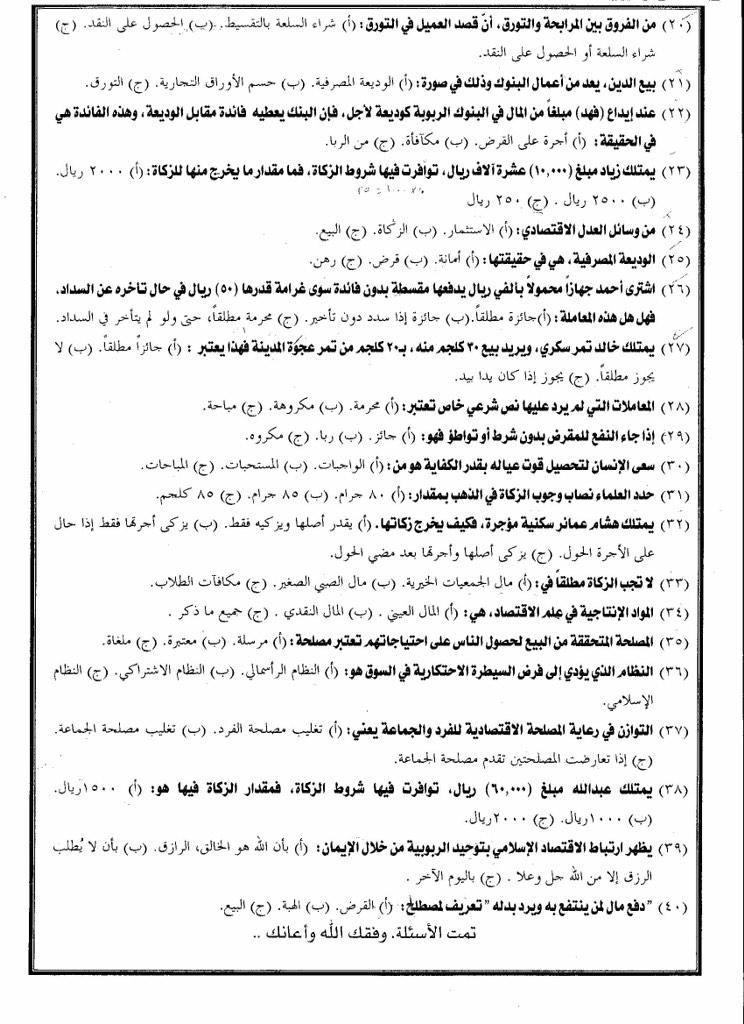 (٢٠) من الفروق بين المرابحة والتورق، أنّ قصد العميل في التورق: (أ) شراء السلعة بالتقسيط. (ب) الحصول على النقد. (ج)
شراء السلعة أو الحصول على النقد.
(٢١) بيع الدين، يعد من أعمال البنوك وذلك في صورة: (أ) الوديعة المصرفية. (ب) حسم الأوراق التجارية. (ج) التورق.
(٢٢) عند إيداع (فهد) مبلغاً من المال في البنوك الربوية كوديعة لأجل، فإن البنك يعطيه فائدة مقابل الوديعة، وهذه الفائدة هي
في الحقيقة: (أ) أجرة على القرض. (ب) مكآفأة. (ج) من الربا.
(٢٣) يمتلك زياد مبلغ (١٠,٠٠٠) عشرة آلاف ريال، توافرت فيها شروط الزكاة، فما مقدار ما يخرج منها للزكاة: (أ) ٢٠٠٠ ريال.
(ب) ٢٥٠٠ ريال . (ج) ٢٥٠ ريال
(٢٤) من وسائل العدل الاقتصادي: (أ) الاستثمار. (ب) الزكاة. (ج) البيع.
(٢٥) الوديعة المصرفية، هي في حقيقتها: (أ) أمانة. (ب) قرض. (ج) رهن.
(٢٦) اشترى أحمد جهازاً محمولاً بألفي ريال يدفعها مقسطة بدون فائدة سوى غرامة قدرها (٥٠) ريال في حال تأخره عن السداد،
فهل هذه المعاملة: (أ)جائزة مطلقاً.(ب) جائزة إذا سدد دون تأخير. (ج) محرمة مطلقاً، حتى ولو لم يتأخر في السداد.
(٢٧) يمتلك خالد تمر سكري، ويريد بيع ٣٠ كلجم منه ، بـ٢٠ كلجم من تمر عجوة المدينة فهذا يعتبر : (أ) جائزاً مطلقاً. (ب) لا
يجوز مطلقاً. (ج) يجوز إذا كان يدا بيد.
(٢٨) المعاملات التي لم يرد عليها نص شرعي خاص تعتبر: (أ) محرمة. (ب) مكروهة. (ج) مباحة.
(٢٩) إذا جاء النفع للمقرض بدون شرط أو تواطؤ فهو: (أ) جائز . (ب) ربا. (ج) مكروه.
(٣٠) سعى الإنسان لتحصيل قوت عياله بقدر الكفاية هو من: (أ) الواجبات. (ب) المستحبات. (ج) المباحات.
(٣١) حدد العلماء نصاب وجوب الزكاة في الذهب بمقدار: (أ) ٨٠ جرام. (ب) ٨٥ جرام. (ج) ٨٥ كلجم.
(٣٢) يمتلك هشام عمائر سكنية مؤجرة، فكيف يخرج زكاتها. (أ) يقدر أصلها ويزكيه فقط. (ب) يزكى أجرتها فقط إذا حال
على الأجرة الحول. (ج) يزكى أصلها وأجرتها بعد مضي الحول.
(٣٣) لا تجب الزكاة مطلقاً في: (أ) مال الجمعيات الخيرية. (ب) مال الصبي الصغير. (ج) مكافآت الطلاب.
(٣٤) المواد الإنتاجية في علم الاقتصاد، هي: (أ) المال العيني . (ب) المال النقدي . (ج) جميع ما ذكر .
(٣٥) المصلحة المتحققة من البيع لحصول الناس على احتياجاتهم تعتبر مصلحة: (أ) مرسلة. (ب) معتبرة. (ج) ملغاة.
(٣٦) النظام الذي يؤدي إلى فرض السيطرة الاحتكارية في السوق هو: (أ) النظام الرأسمالي. (ب) النظام الاشتراكي. (ج) النظام
الإسلامي.
(٣٧) التوازن في رعاية المصلحة الاقتصادية للفرد والجماعة يعني: (أ) تغليب مصلحة الفرد. (ب) تغليب مصلحة الجماعة.
(ج) إذا تعارضت المصلحتين تقدم مصلحة الجماعة.
(٣٨) يمتلك عبدالله مبلغ (٦٠,٠٠٠) ريال، توافرت فيها شروط الزكاة، فمقدار الزكاة فيها هو: (أ) ١٥٠٠ريال.
(ب) ١٠٠٠ريال. (ج) ٢٠٠٠ريال.
(٣٩) يظهر ارتباط الاقتصاد الإسلامي بتوحيد الربوبية من خلال الإيمان: (أ) بأن الله هو الخالق، الرازق. (ب) بأن لا يُطلب
الرزق إلا من الله جل وعلا . (ج) باليوم الآخر .
(٤٠) "دفع مال لمن ينتفع به ويرد بدله " تعريف لمصطلح: (أ) القرض. (ب) الهبة. (ج) البيع.
تمت الأسئلة. وفقك الله وأعانك ..